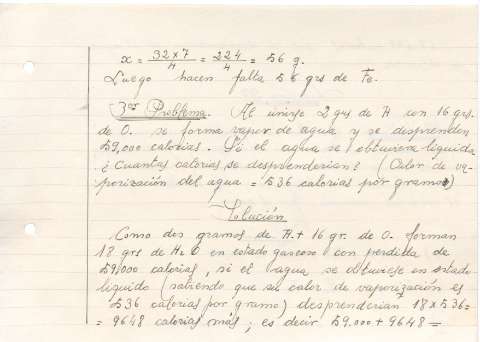 x = 32x7/4 = 224/4 = 56 g.
Luego hacen falta 56 grs de Fe.
3er Problema. Al unirse 2 grs de H con 16 grs.
de O. se forma vapor de agua y se desprenden
59,000 calorias. Si el agua se obtuviera liquida
¿Cuantas calorias se desprenderian? (Calor de va-
porización del agua = 536 calorias por gramo)
Solución
Como dos gramos de H + 16 gr. de O. forman
18 grs de H2O en estado gaseoso con perdida de
59,000 calorias, si el agua se obtuviese en estado
liquido (sabiendo que su calor de vaporización es
536 calorias por gramo) desprenderian 18x536=
= 9648 calorias más; es decir 59.000 + 9648 =